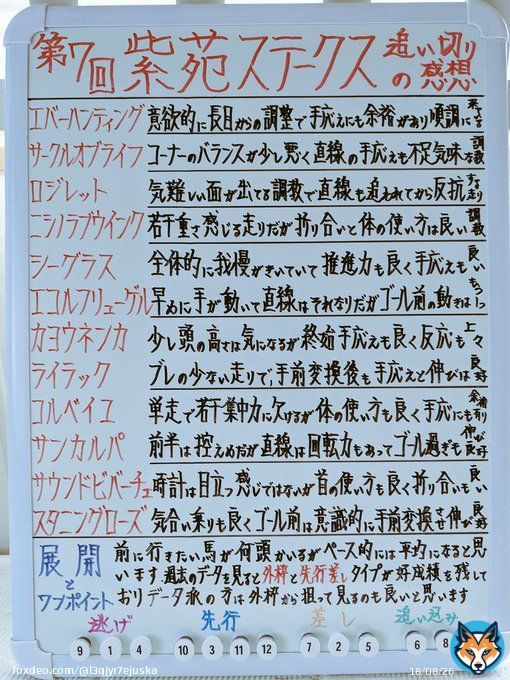 第7回 紫苑ステークス 追い切りの感想
エバーハンティング 意欲的に長目からの調整で手応えにも余裕があり順調に来てる
サークルオブライフ コーナーのバランスが少し悪く直線の手応えも不足気味な調教
ロジレット 気難しい面が出てる調教で直線も追われてから反抗する走り
ニシノラブウインク 若干重さ感じる走りだが折り合いと体の使い方は良い調教
シーグラス 全体的に我慢がきいていて推進力も良く手応えも良い
エコルフリューゲル 早めに手が動いて直線はそれなりだがゴール前の動きはもう一つ
カヨウネンカ 少し頭の高さは気になるが終始手応えも良く反応も上々
ライラック ブレの少ない走りで、手前変換後も手応えと伸びは良好
コルベイユ 単走で若干集中力に欠けるが体の使い方も良く手応にも余裕有り
サンカルパ 前半は控えめだが直線は回転力もあってゴール過ぎも伸び良好
サウンドビバーチェ 時計は目立つ感じではないが首の使い方も良く折り合いも良い
スタニングローズ 気合い乗りも良くゴール前は意識的に手前変換させ伸び良好
展開とワンポイント
前に行きたい馬が何頭かいるがペース的には平均になると思
います 過去のデータを見ると外枠と先行差しタイプが好成績を残して
おりデータ派の方は外枠から狙って見るのも良いと思います
逃げ 先行 差し 追い込み
9 1 4 10 3 11 12 7 2 5 6 8
foxdeo.com/@l3qjyr7ejuska
18/08/26